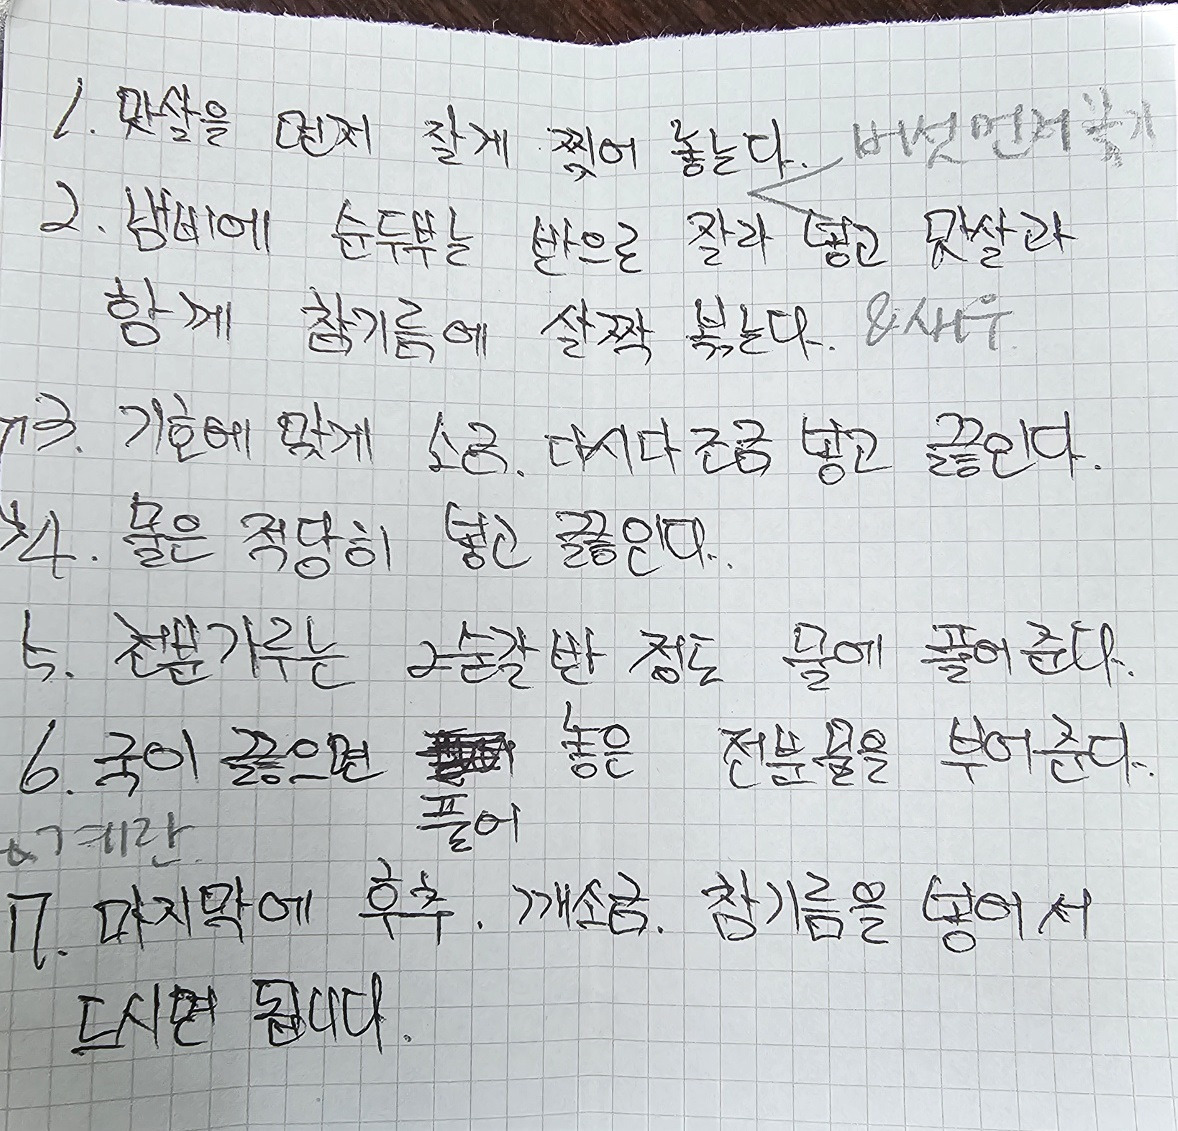 1. 맛살을 먼저 잘게 찢어 놓는다. 버섯먼저볶기
2. 냄비에 순두부는 반으로 잘라 넣고 맛살과
함께 참기름에 살짝 볶는다. &새우
3. 기호에 맞게 소금. 다시다 조금 넣고 끓인다.
4. 물은 적당히 넣고 끓인다.
5. 전분가루는 2숟갈 반 정도 물에 풀어 준다.
6. 국이 끓으면 풀어 놓은 전분물을 부어준다.
계란
7. 마지막에 후추. 깨소금. 참기름을 넣어서
드시면 됩니다.